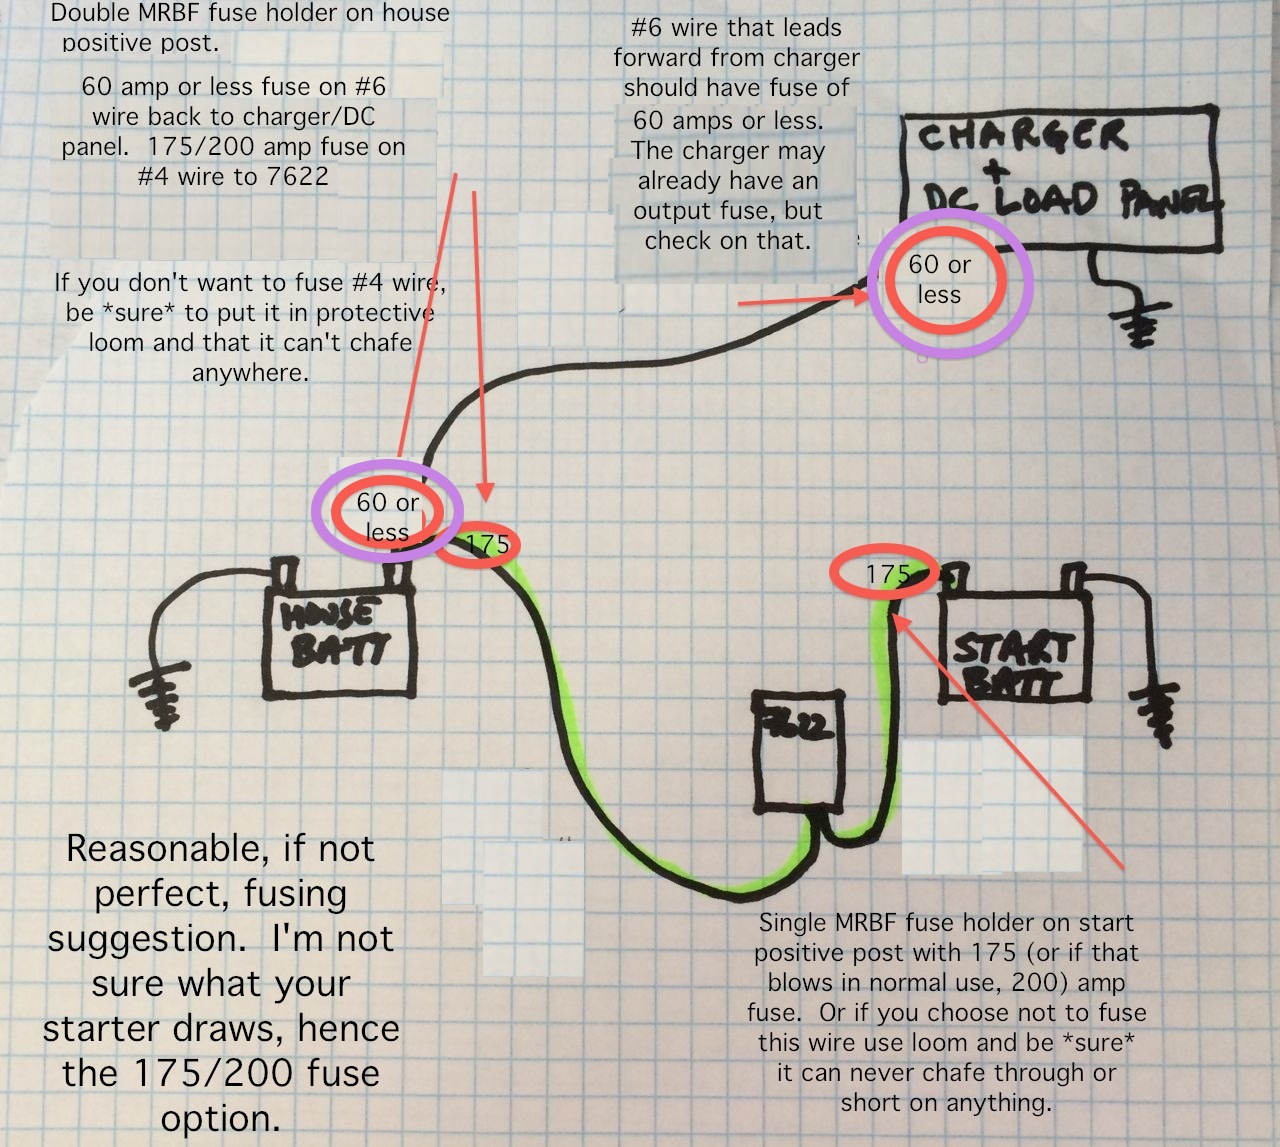 Double MRBF fuse holder on house
positive post.
60 amp or less fuse on #6
wire back to charger/DC
panel.  175/200 amp fuse on
#4 wire to 7622
If you don't want to fuse #4 wire,
be *sure* to put it in protective
loom and that it can't chafe
anywhere.
#6 wire that leads
forward from charger
should have fuse of
60 amps or less.
The charger may
already have an
output fuse, but
check on that.
CHARGER
+
DC LOAD PANEL
60 or
less
60 or
less
175
175
HOUSE
BATT
START
BATT
7622
Reasonable, if not
perfect, fusing
suggestion.  I'm not
sure what your
starter draws, hence
the 175/200 fuse
option.
Single MRBF fuse holder on start
positive post with 175 (or if that
blows in normal use, 200) amp
fuse.  Or if you choose not to fuse
this wire use loom and be *sure*
it can never chafe through or
short on anything.